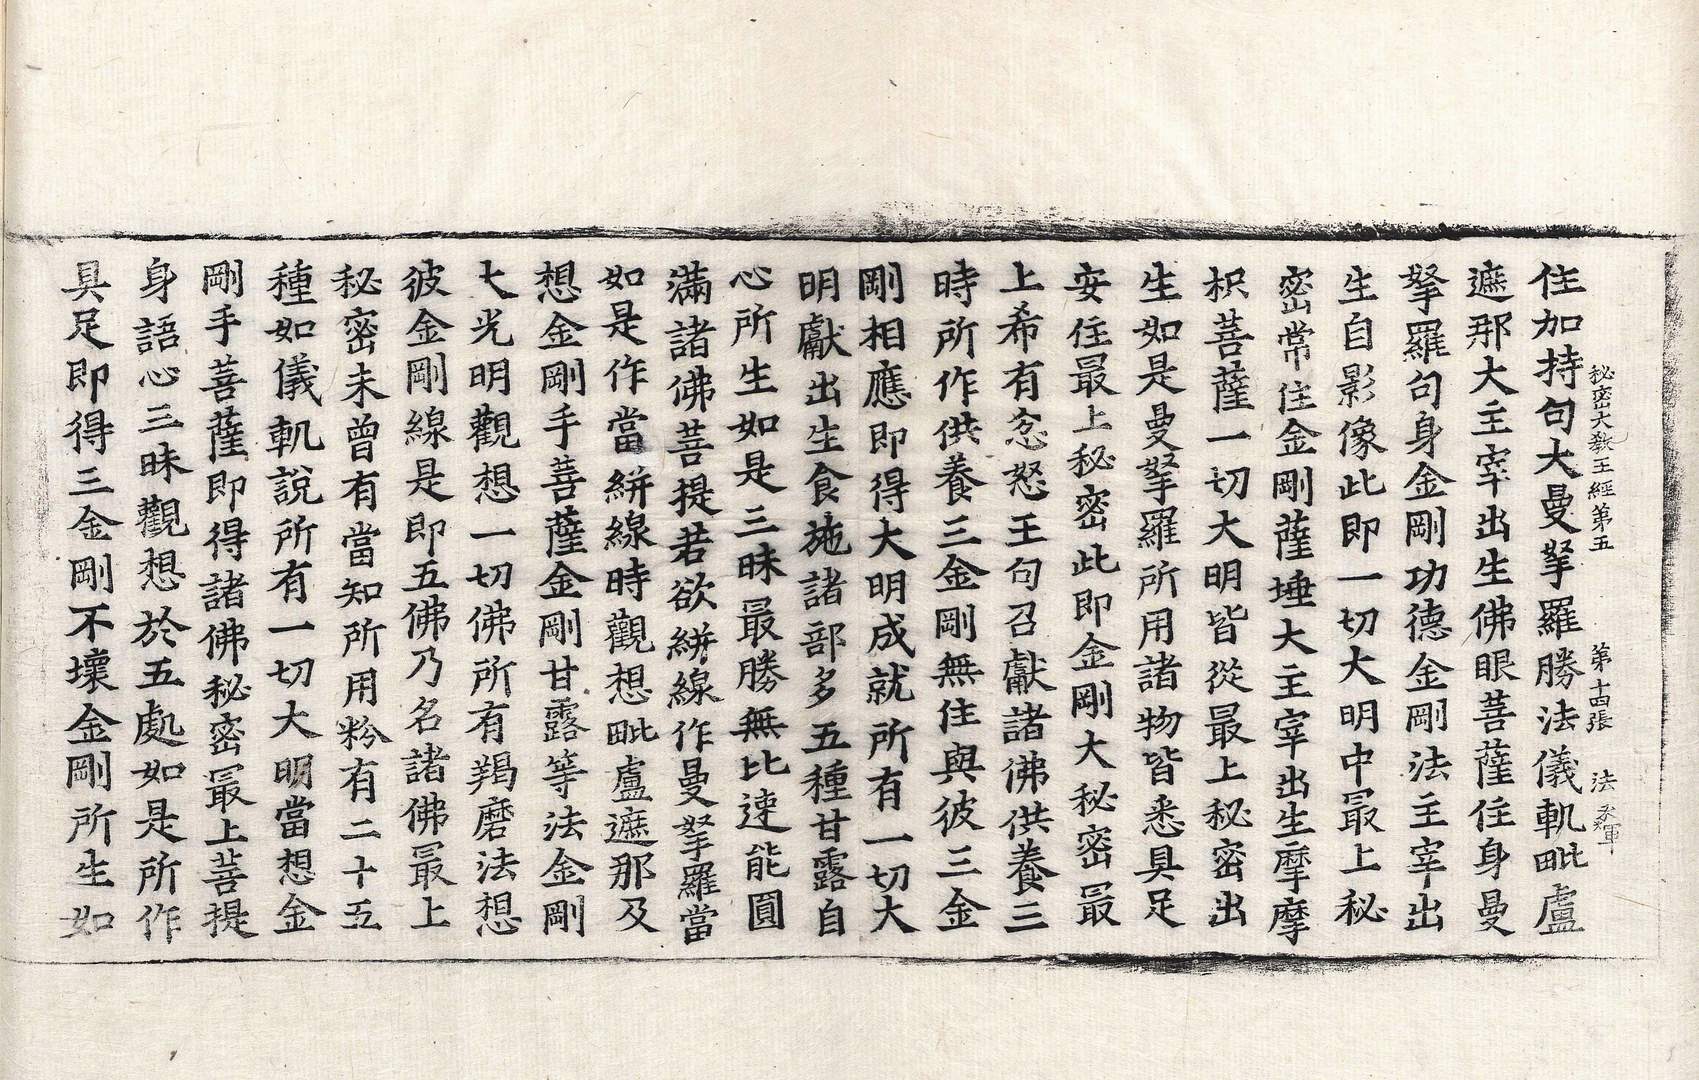 秘密大教王經第五 第十四張 法
住加持句大曼拏羅勝法儀軌毗盧
遮那大主宰出生佛眼菩薩住身曼
拏羅句身金剛功德金剛法主宰出
生自影像此即一切大明中最上秘
密常住金剛薩埵大主宰出生摩摩
枳菩薩一切大明皆從最上秘密出
生如是曼拏羅所用諸物皆悉具足
安住最上秘密此即金剛大秘密最
上希有忿怒王句召獻諸佛供養三
時所作供養三金剛無住與彼三金
剛相應即得大明成就所有一切大
明獻出生食施諸部多五種甘露自
心所生如是三昧最勝無比速能圓
滿諸佛菩提若欲絣線作曼拏羅當
如是作當絣線時觀想毗盧遮那及
想金剛手菩薩金剛甘露等法金剛
大光明觀想一切佛所有羯磨法想
彼金剛線是即五佛乃名諸佛最上
秘密未曾有當知所用粉有二十五
種如儀軌說所有一切大明當想金
剛手菩薩即得諸佛秘密最上菩提
身語心三昧觀想於五處如是所作
具足即得三金剛不壞金剛所生如